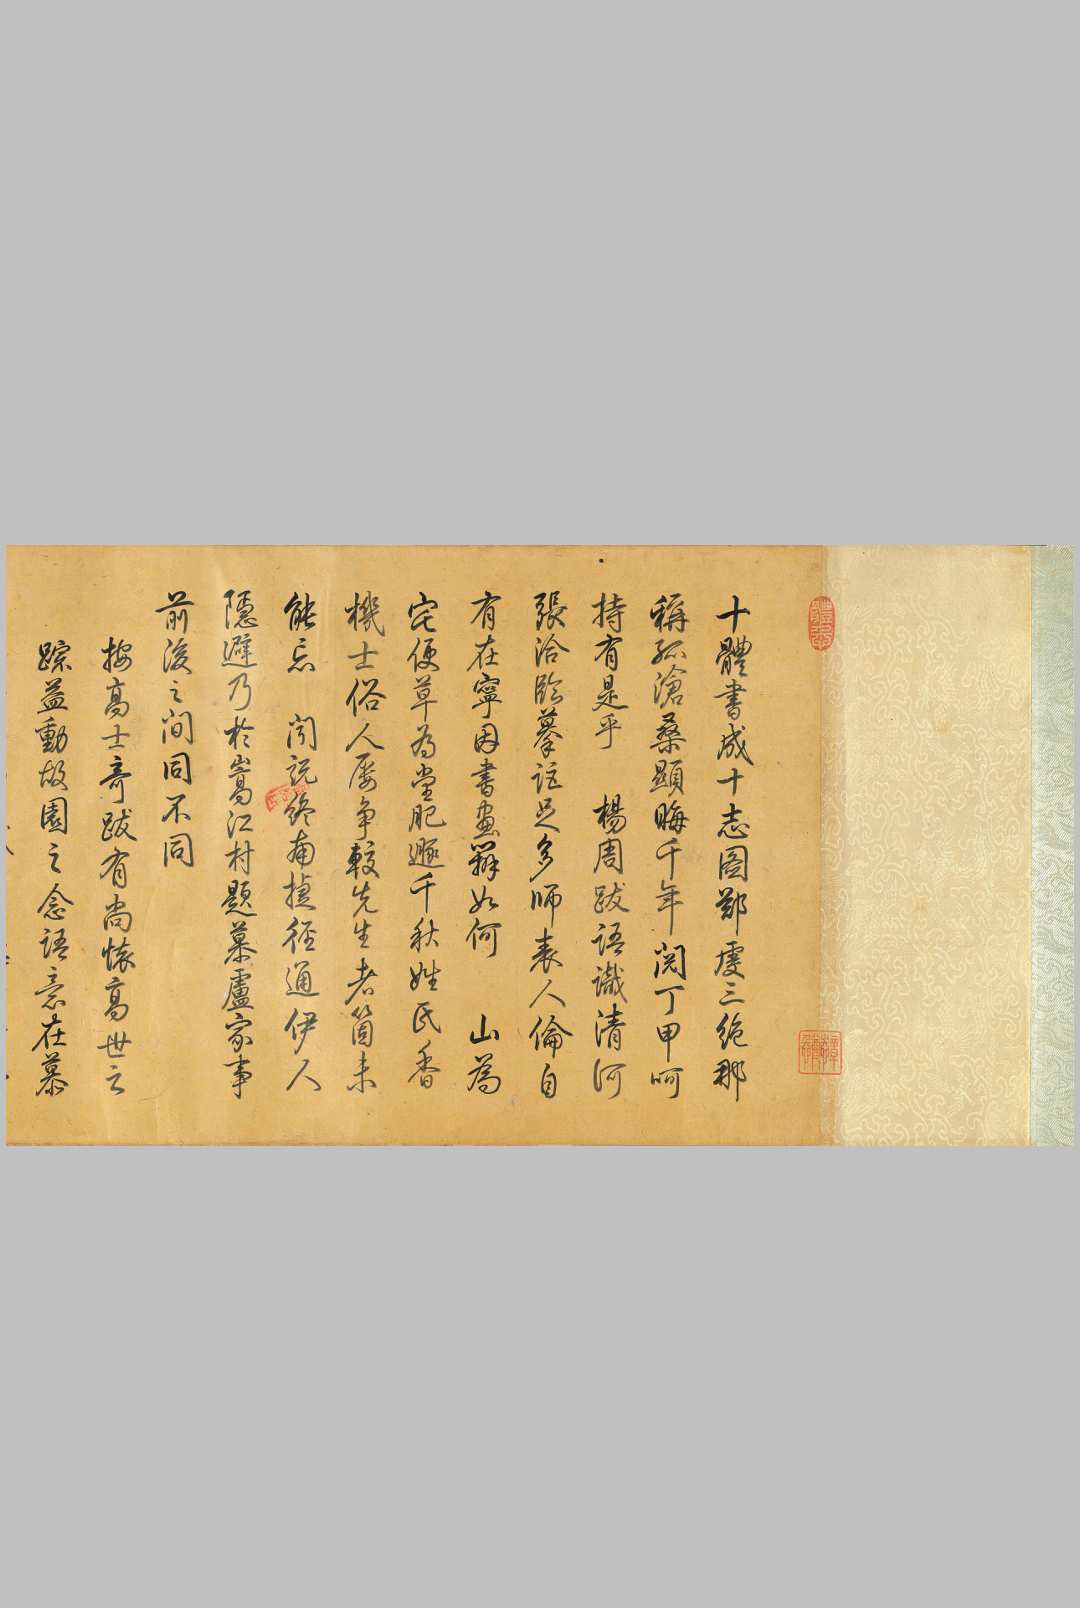 十體書成十志圖鄭虔三絕那
稱孤滄桑顯晦千年閱丁甲呵
持有是乎 楊周跋語識清河
張洽臨摹詎足多師表人倫自
有在寧因書畫辨如何 山為
宅便草為堂肥遯千秋姓氏香
機士俗人屡争較先生老箇未
能忘 聞說終南捷徑通伊人
隱避乃於嵩江村題慕廬家事
前後之間同不同
按高士奇跋有尚懷高世之
踪益動故園之念語意在慕